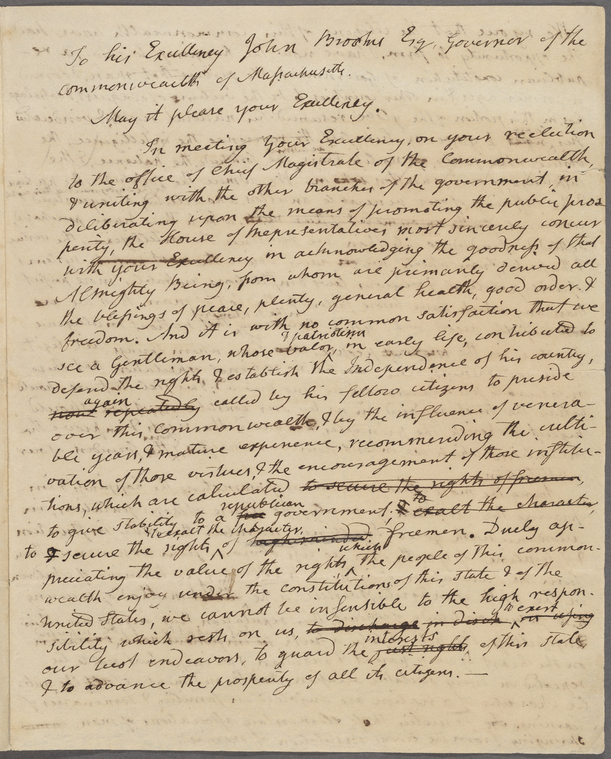 To his Excellency John Brooks Esq. Governor of the
Commonwealth of Massachusetts.
May it please your Excellency.
In meeting Your Excellency, on your reelection
to the office of Chief Magistrate of the Commonwealth,
& uniting with the other branches of the government, in
deliberating upon the means of promoting the public pros
perity, the House of Representatives most sincerely concur
with your Excellency in acknowledging the goodness of that
Almighty Being, from whom are primarily derived all
the blessings of peace, plenty, general health, good order &
freedom. And it is with no common satisfaction that we
& patriotism
see a Gentleman, whose valor in early life, contributed to
defend the rights & establish the Independence of his country,
again
now repeatedly called by his fellow citizens to preside
over this Commonwealth, & by the influence of venera-
ble years, & mature experience, recommending the culti-
vation of those virtues, & the encouragement of those institu-
tions, which are calculated to secure the rights of freemen,
republican to
to give stability to a free government, & exalt the character
& exalt the character
to & secure the rights of high minded freemen. Duely ap-
which
preciating the value of the rights, the people of this common-
wealth enjoy under the constitutions of this State & of the
United States, we cannot be insensible to the high respon-
to exert
sibility which rests on us, to discharge in using
interests
our best endeavors, to guard the just rights of this State
& to advance the prosperity of all its citizens. —